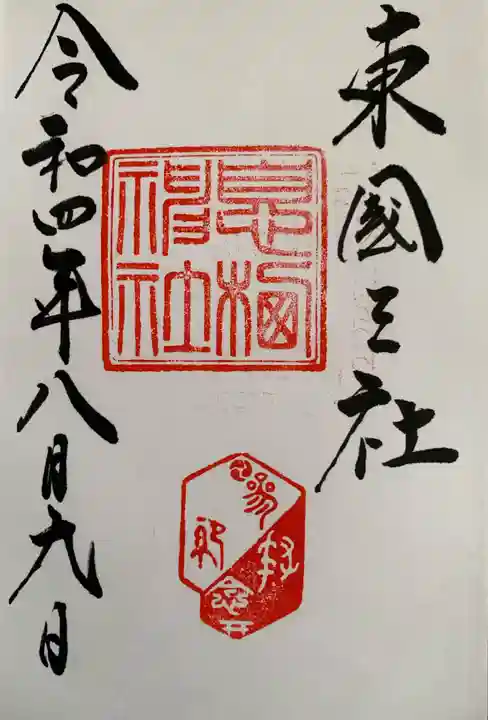 東國三社
息栖
神社
令和四年八月九日